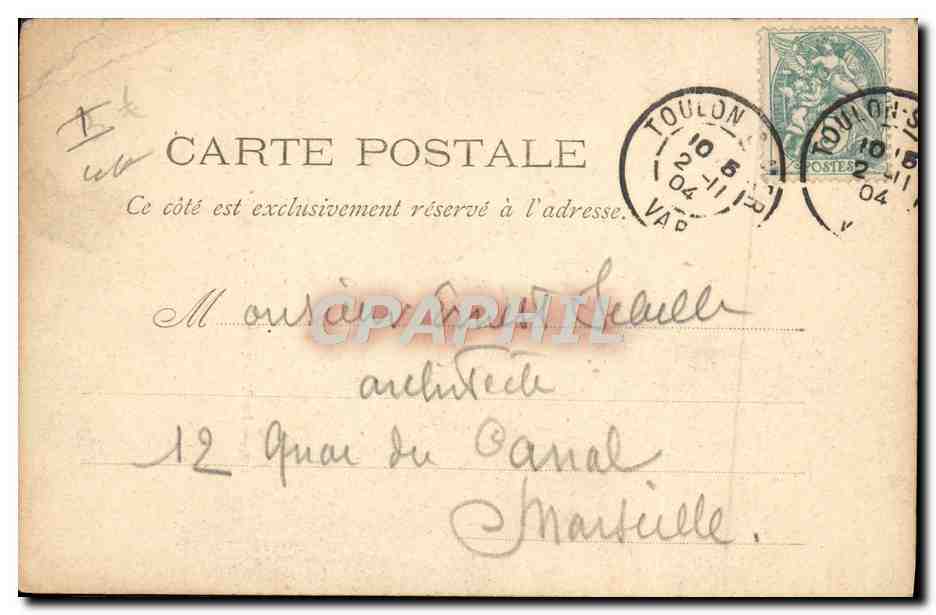 CARTE POSTALE
Ce côté est exclusivement réservé à l'adresse.
POSTES
TOULON
10
2 -11
04
VAR
TOULON-S
10
2 -11
04
V
CPAPHIL
Monsieur Ernest
architecte
12 Quai du Canal
Marseille.